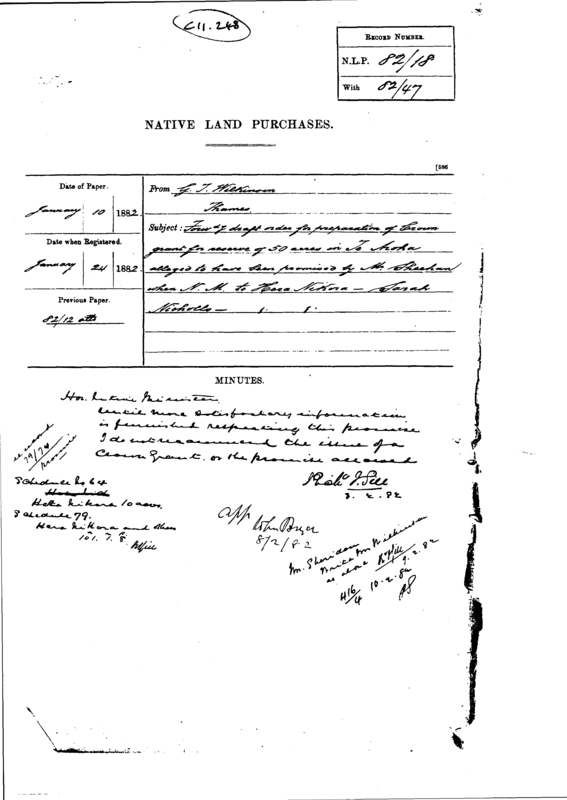 C11.248
RECORD NUMBER.
N.L.P. 82/18
With 82/47
NATIVE LAND PURCHASES.
[586
Date of Paper.
January 10 1882.
Date when Registered.
January 24 1882.
Previous Paper.
82/12
From G. T. Wilkinson
Thames
Subject: Forwdg draft order for preparation of Crown
grant for reserve of 50 acres in Te Aroha
alleged to have been promised by Mr. Sheehan
when N. M. to Hera Nikora — Sarah
Nicholls —
MINUTES.
Hon. Native Minister
Until more satisfactory information
is furnished respecting this promise
I do not recommend the issue of a
Crown Grant. or the promise
Richd J. Gill
3. 2. 82
79/74
promise
Schedule No 64
Heta Nikora 10 acres.
Schedule 79.
Hera Nikora and others
101. 7. 8
RJGill
app
John Bryce
8/2/82
Mr. Sheridan
Write Mr Wilkinson
as above RJGill
9. 2. 82
416/4 10.2.82